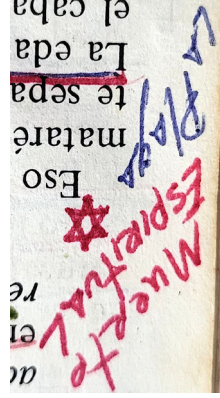 re
Eso
mataré
te sepa
La eda
el caba
Muerte
Espiritual